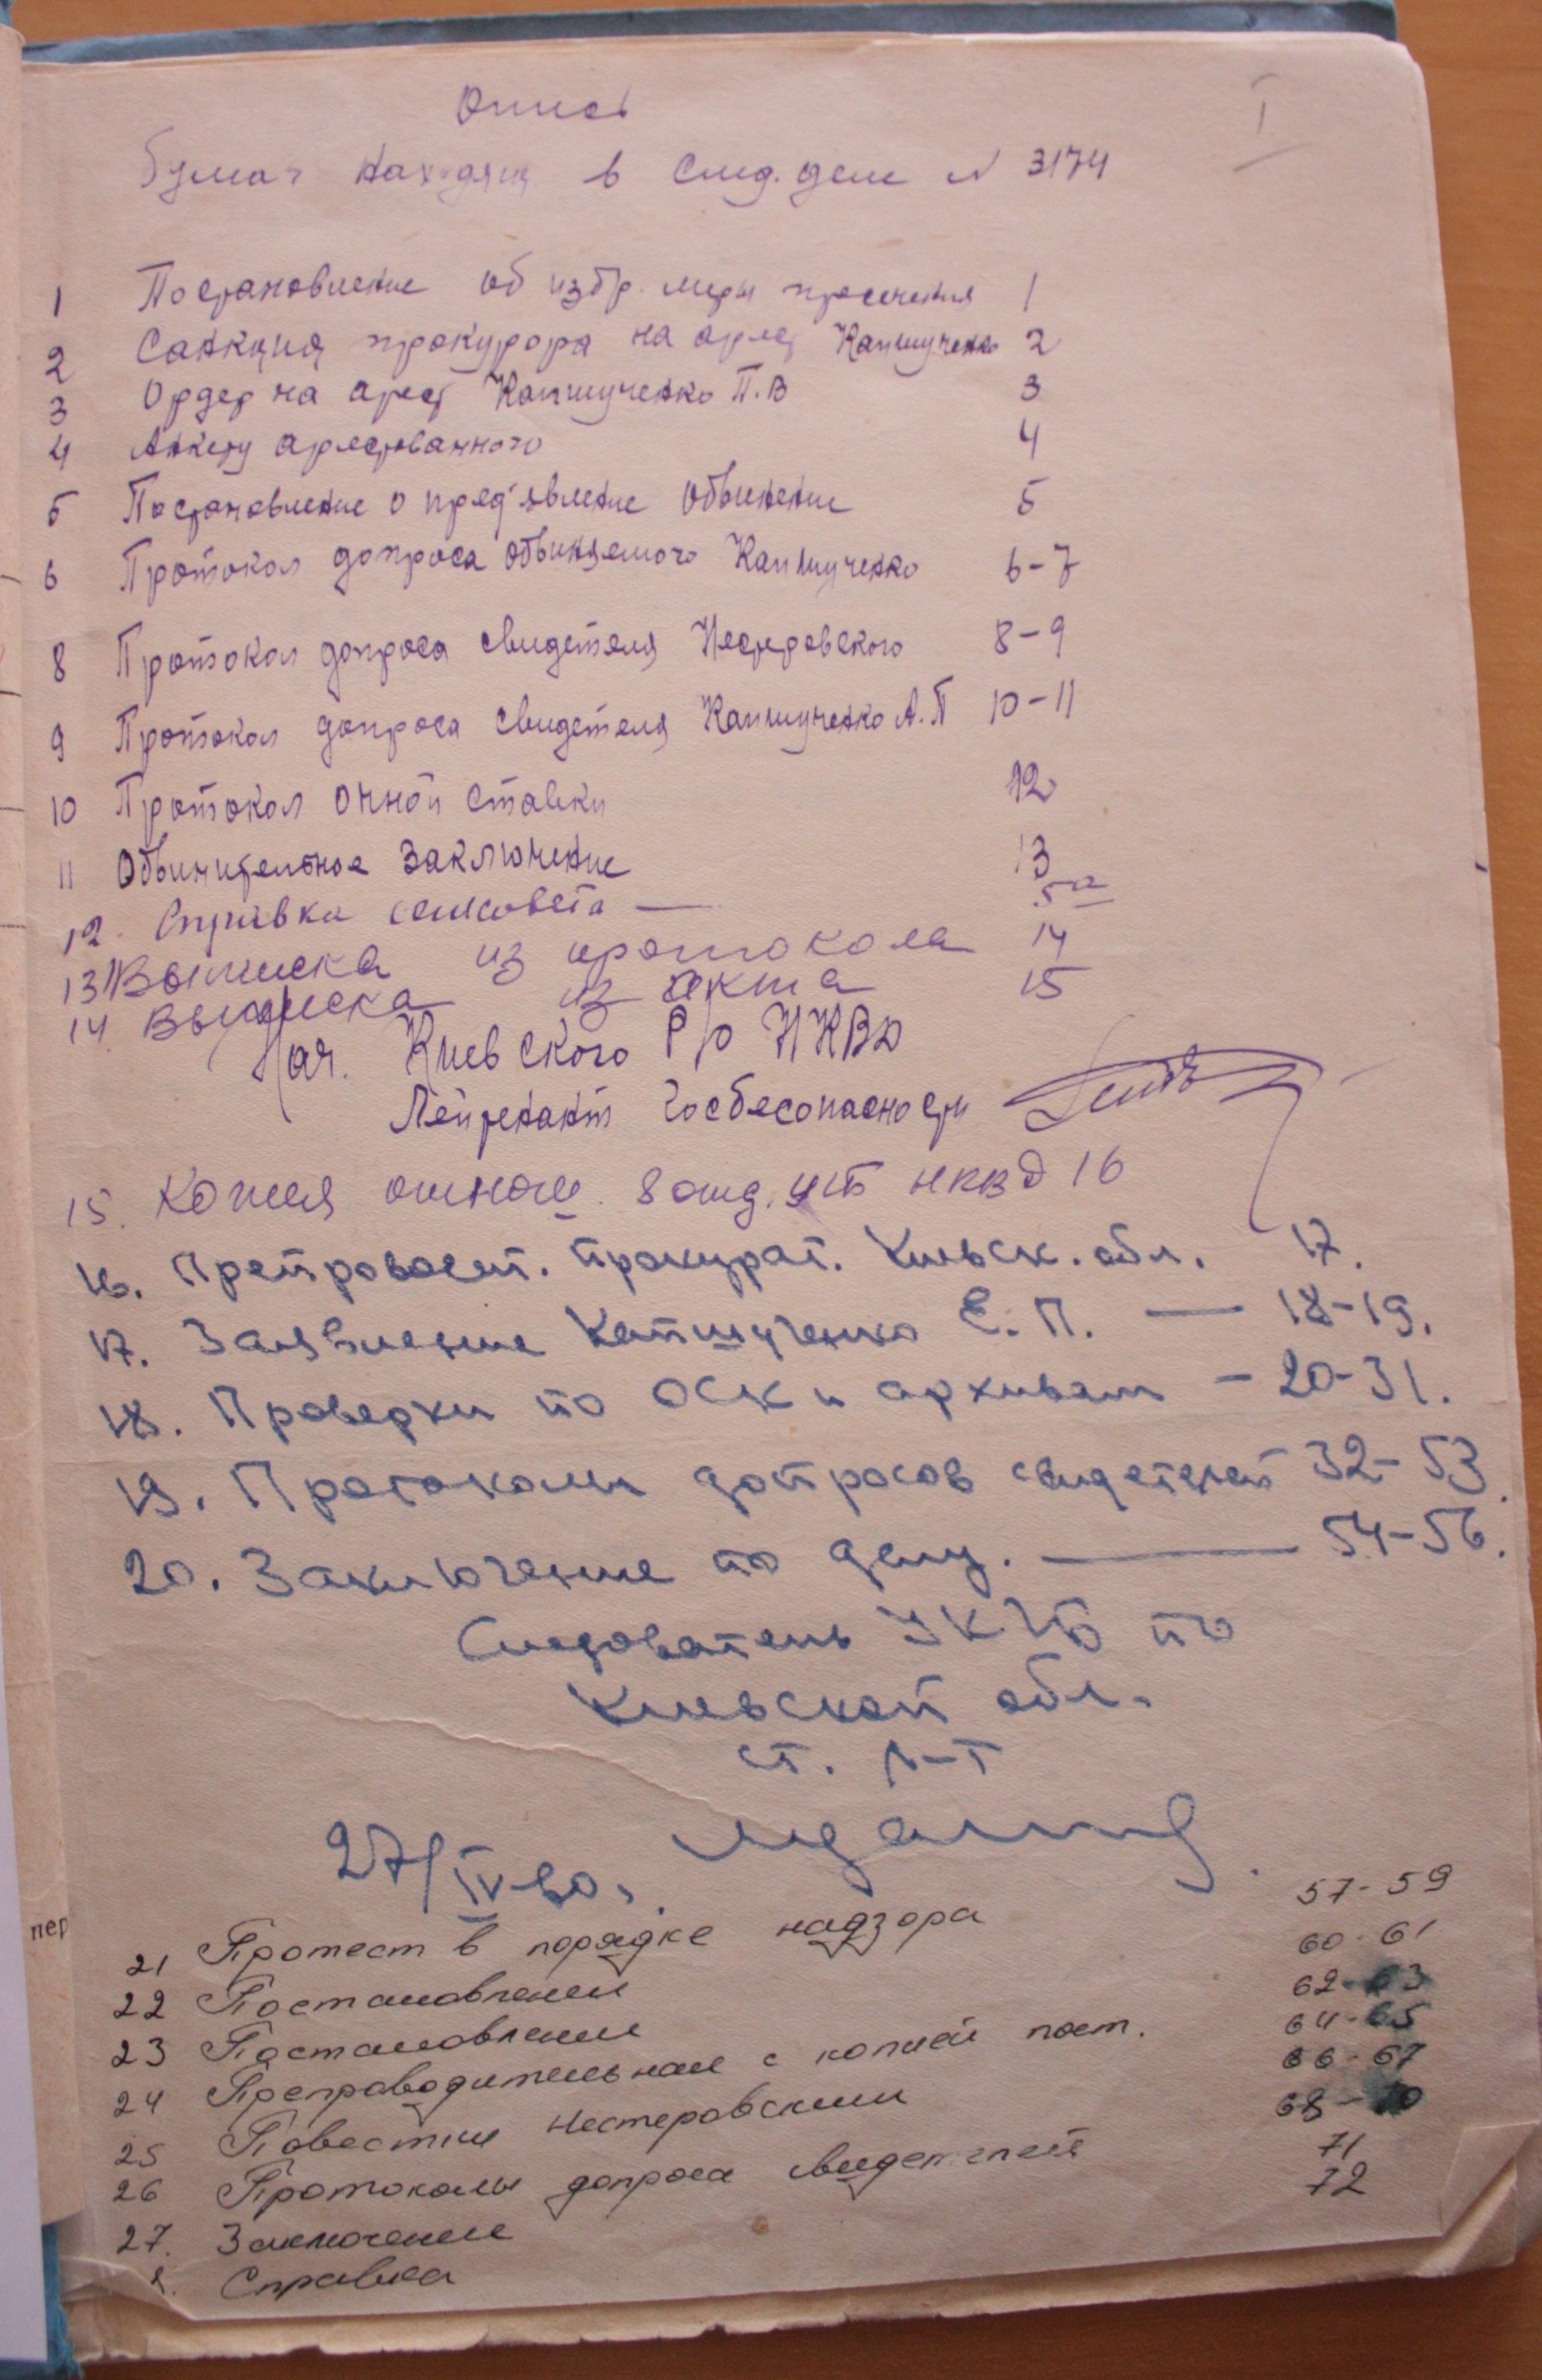 I
Опись
бумаг находящ в след. деле N 3174
1 Постановление об избр. меры пресечения 1
2 Санкция прокурора на арест Капшученко 2
3 Ордер на арест Капшученко П.В 3
4 Анкету арестованного 4
5 Постановление о пред'явление обвинение 5
6 Протокол допроса обвиняемого Капшученко 6-7
8 Протокол допроса свидетеля Нестеровского 8-9
9 Протокол допроса свидетеля Капшученко А.П 10-11
10 Протокол очной ставки 12
11 Обвинительное заключение 13
12. Справка сельсовета — 5а
13 Выписка из протокола 14
14 Выписка из акта 15
Нач. Киевского Р/о НКВД
Лейтенант Госбесопасности
15. Копия отнош. 8 отд. УГБ НКВД 16
16. Препровослт. прокурат. Киевск. обл. 17.
17. Заявление Капшученко Е.П. — 18-19.
18. Проверки по ОСК и архивам – 20-31.
19. Протоколы допросов свидетелей 32-53.
20. Заключение по делу. — 54-56.
Следователь УКГБ по
Киевской обл.
ст. л-т
27/IV-60.
21 Протест в порядке надзора 57-59
22 Постановление 60-61
23 Постановление 62-63
24 Препроводительная с копией пост. 64-65
25 Повестки Нестеровским 66-67
26 Протоколы допроса свидетелей 68-70
27. Заключение 71
8. Справка 72
пер